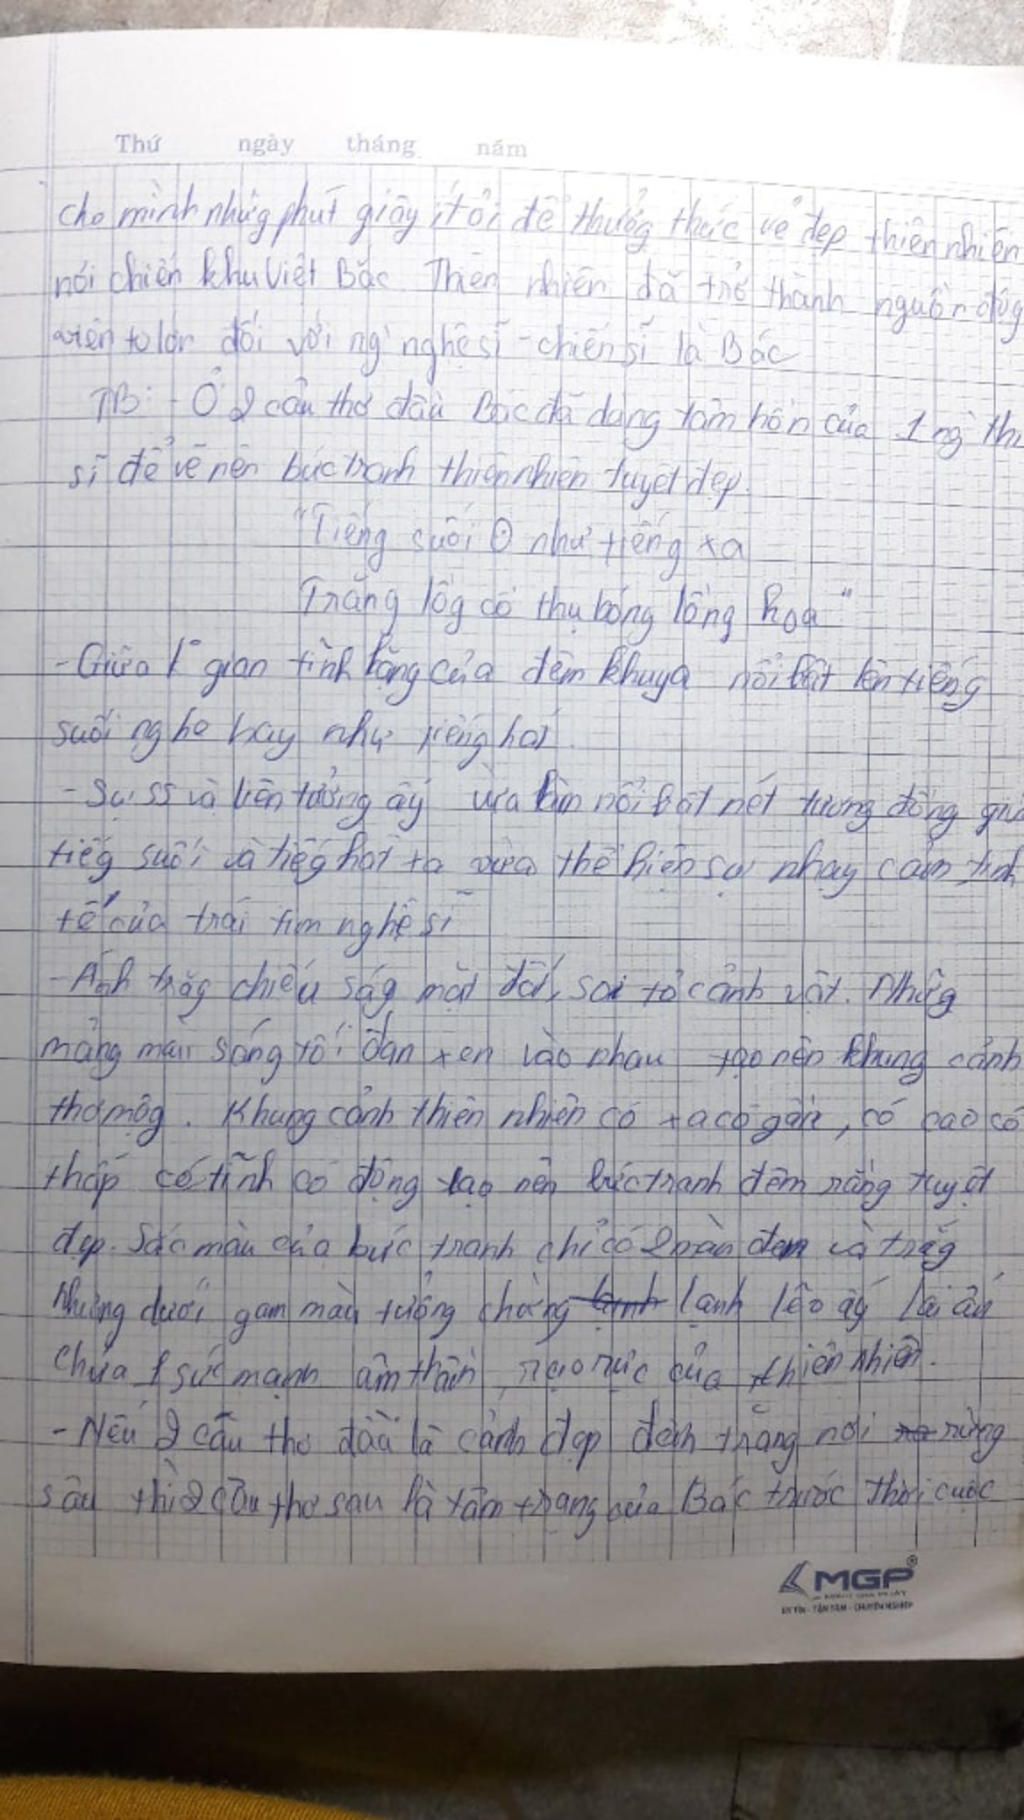 Thứ ngày tháng năm
cho mình nhứg phút giây ít ỏi để thưởg thức vẻ đẹp thiên nhiên
nơi chiến khu Việt Bắc Thiên nhiên đã trở thành nguồn độg
viên to lớn đối với ng' nghệ sĩ - chiến sĩ là Bác
TB: - Ở 2 câu thơ đầu Bác đã dùng tâm hồn của 1 ng' thi
sĩ để vẽ nên bức tranh thiên nhiên tuyệt đẹp.
"Tiếng suối như tiếng xa
Trăng lồg cổ thụ bóng lồng hoa"
- Giữa gian tĩnh lặng của đêm khuya nổi bật lên tiếng
suối nghe hay như tiếng hát.
- Sự ss và liên tưởng ấy vừa làm nổi bật nét tương đồng giữa
tiếg suối và tiếg hát ta vừa thể hiện sự nhạy cảm tinh
tế của trái tim nghệ sĩ
- Ánh trăg chiếu ság mặt đất, soi tỏ cảnh vật. Nhữg
mảng màu sáng tối đan xen vào nhau tạo nên khung cảnh
thơ mộg. Khung cảnh thiên nhiên có xa có gần, có cao có
thấp có tĩnh có động tạo nên bức tranh đêm rằng tuyệt
đẹp. Sắc màu của bức tranh chỉ có 2 màu đen và trắg
Nhưng dưới gam màu tưởng chừng lạnh lẽo ấy lại ẩn
chứa 1 sức mạnh âm thầm, rạo rực của thiên nhiên.
- Nếu 2 câu thơ đầu là cảnh đẹp đêm trăng nơi rừng
sâu thì 2 câu thơ sau là tâm trạng của Bác trước thời cuộc
MGP
UY TÍN - TẬN TÂM - CHUYÊN NGHIỆP